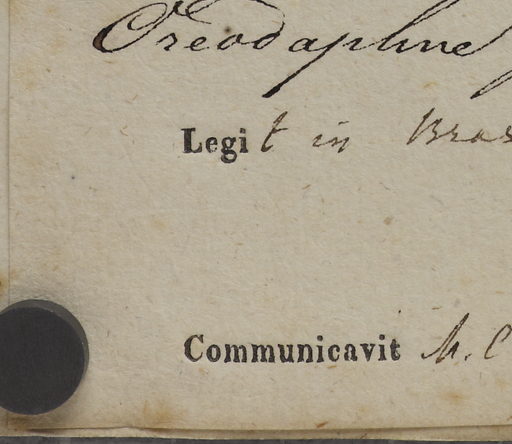 Oreodaphne
Legit in Bras
Communicavit M. C